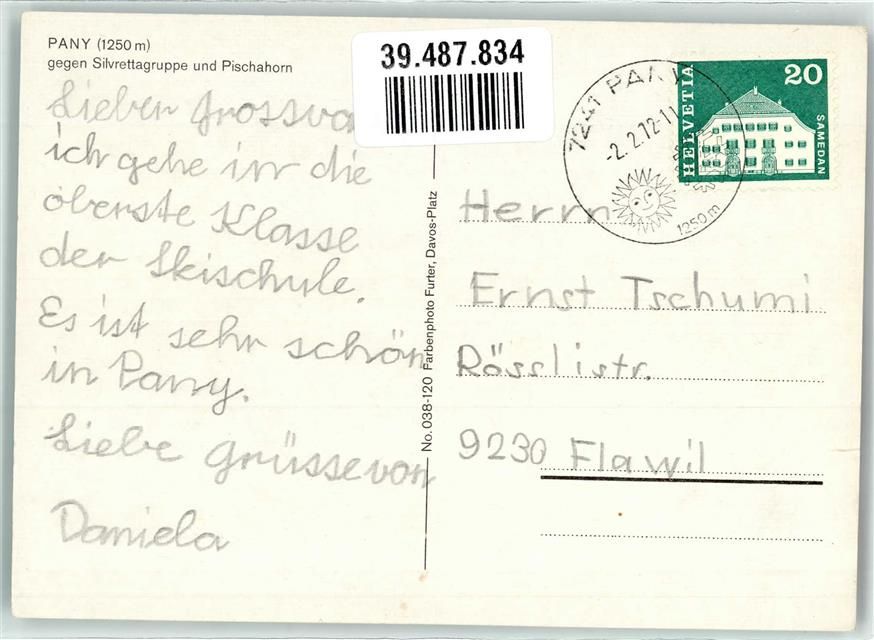 PANY (1250 m)
gegen Silvrettagruppe und Pischahorn
39.487.834
Lieber Grossva
ich gehe in die
oberste Klasse
der Skischule.
Es ist sehr schön
in Pany.
Liebe Grüsse von
Daniela
No. 038-120 Farbenphoto Furter, Davos-Platz
7241 PANY
-2.2.72-11
1250 m
HELVETIA
20
SAMEDAN
Herrn
Ernst Tschumi
Rösslistr.
9230 Flawil